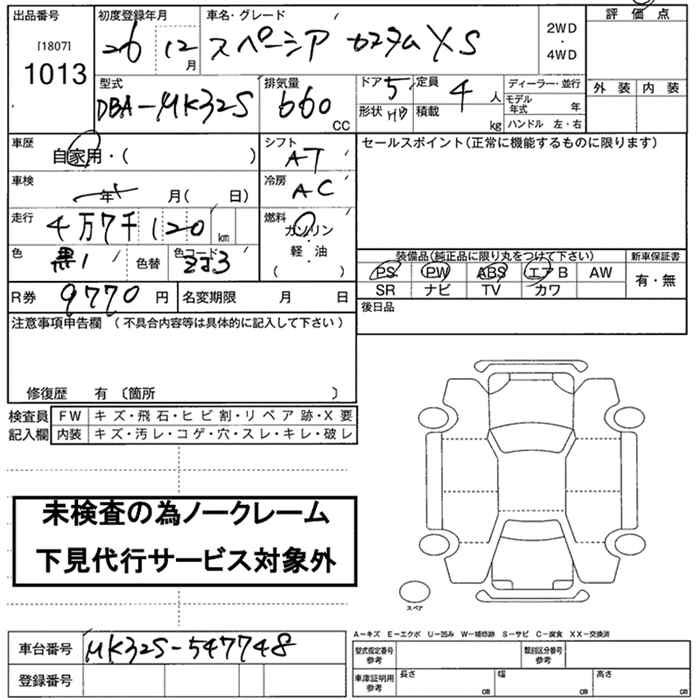 出品番号 初度登録年月 車名・グレード 評価点
[1807] 26 12月 スペーシア カスタム XS 2WD・4WD
1013
型式 排気量 ドア 5 定員 4人 ディーラー・並行 外装 内装
DBA-MK32S 660 CC 形状 HB 積載 kg モデル年式 年
ハンドル 左・右
車歴 自家用・( ) シフト AT セールスポイント(正常に機能するものに限ります)
車検 年 月( 日) 冷房 AC
走行 4万7千120 km 燃料 ガソリン
色 黒1 色替 色コード ZJ3 軽・油
( )
装備品(純正品に限り丸をつけて下さい) 新車保証書
PS PW ABS エアB AW 有・無
SR ナビ TV カワ
R券 9770 円 名変期限 月 日 後日品
注意事項申告欄 (不具合内容等は具体的に記入して下さい)
修復歴 有 〔箇所 〕
検査員 FW キズ・飛石・ヒビ割・リペア跡・X要
記入欄 内装 キズ・汚レ・コゲ・穴・スレ・キレ・破レ
未検査の為ノークレーム
下見代行サービス対象外
スペア
A-キズ E-エクボ U-凹み W-補修跡 S-サビ C-腐食 XX-交換済
車台番号 MK32S-547748 型式指定番号 参考 類別区分番号 参考
登録番号 車庫証明用 参考 長さ cm 幅 cm 高さ cm